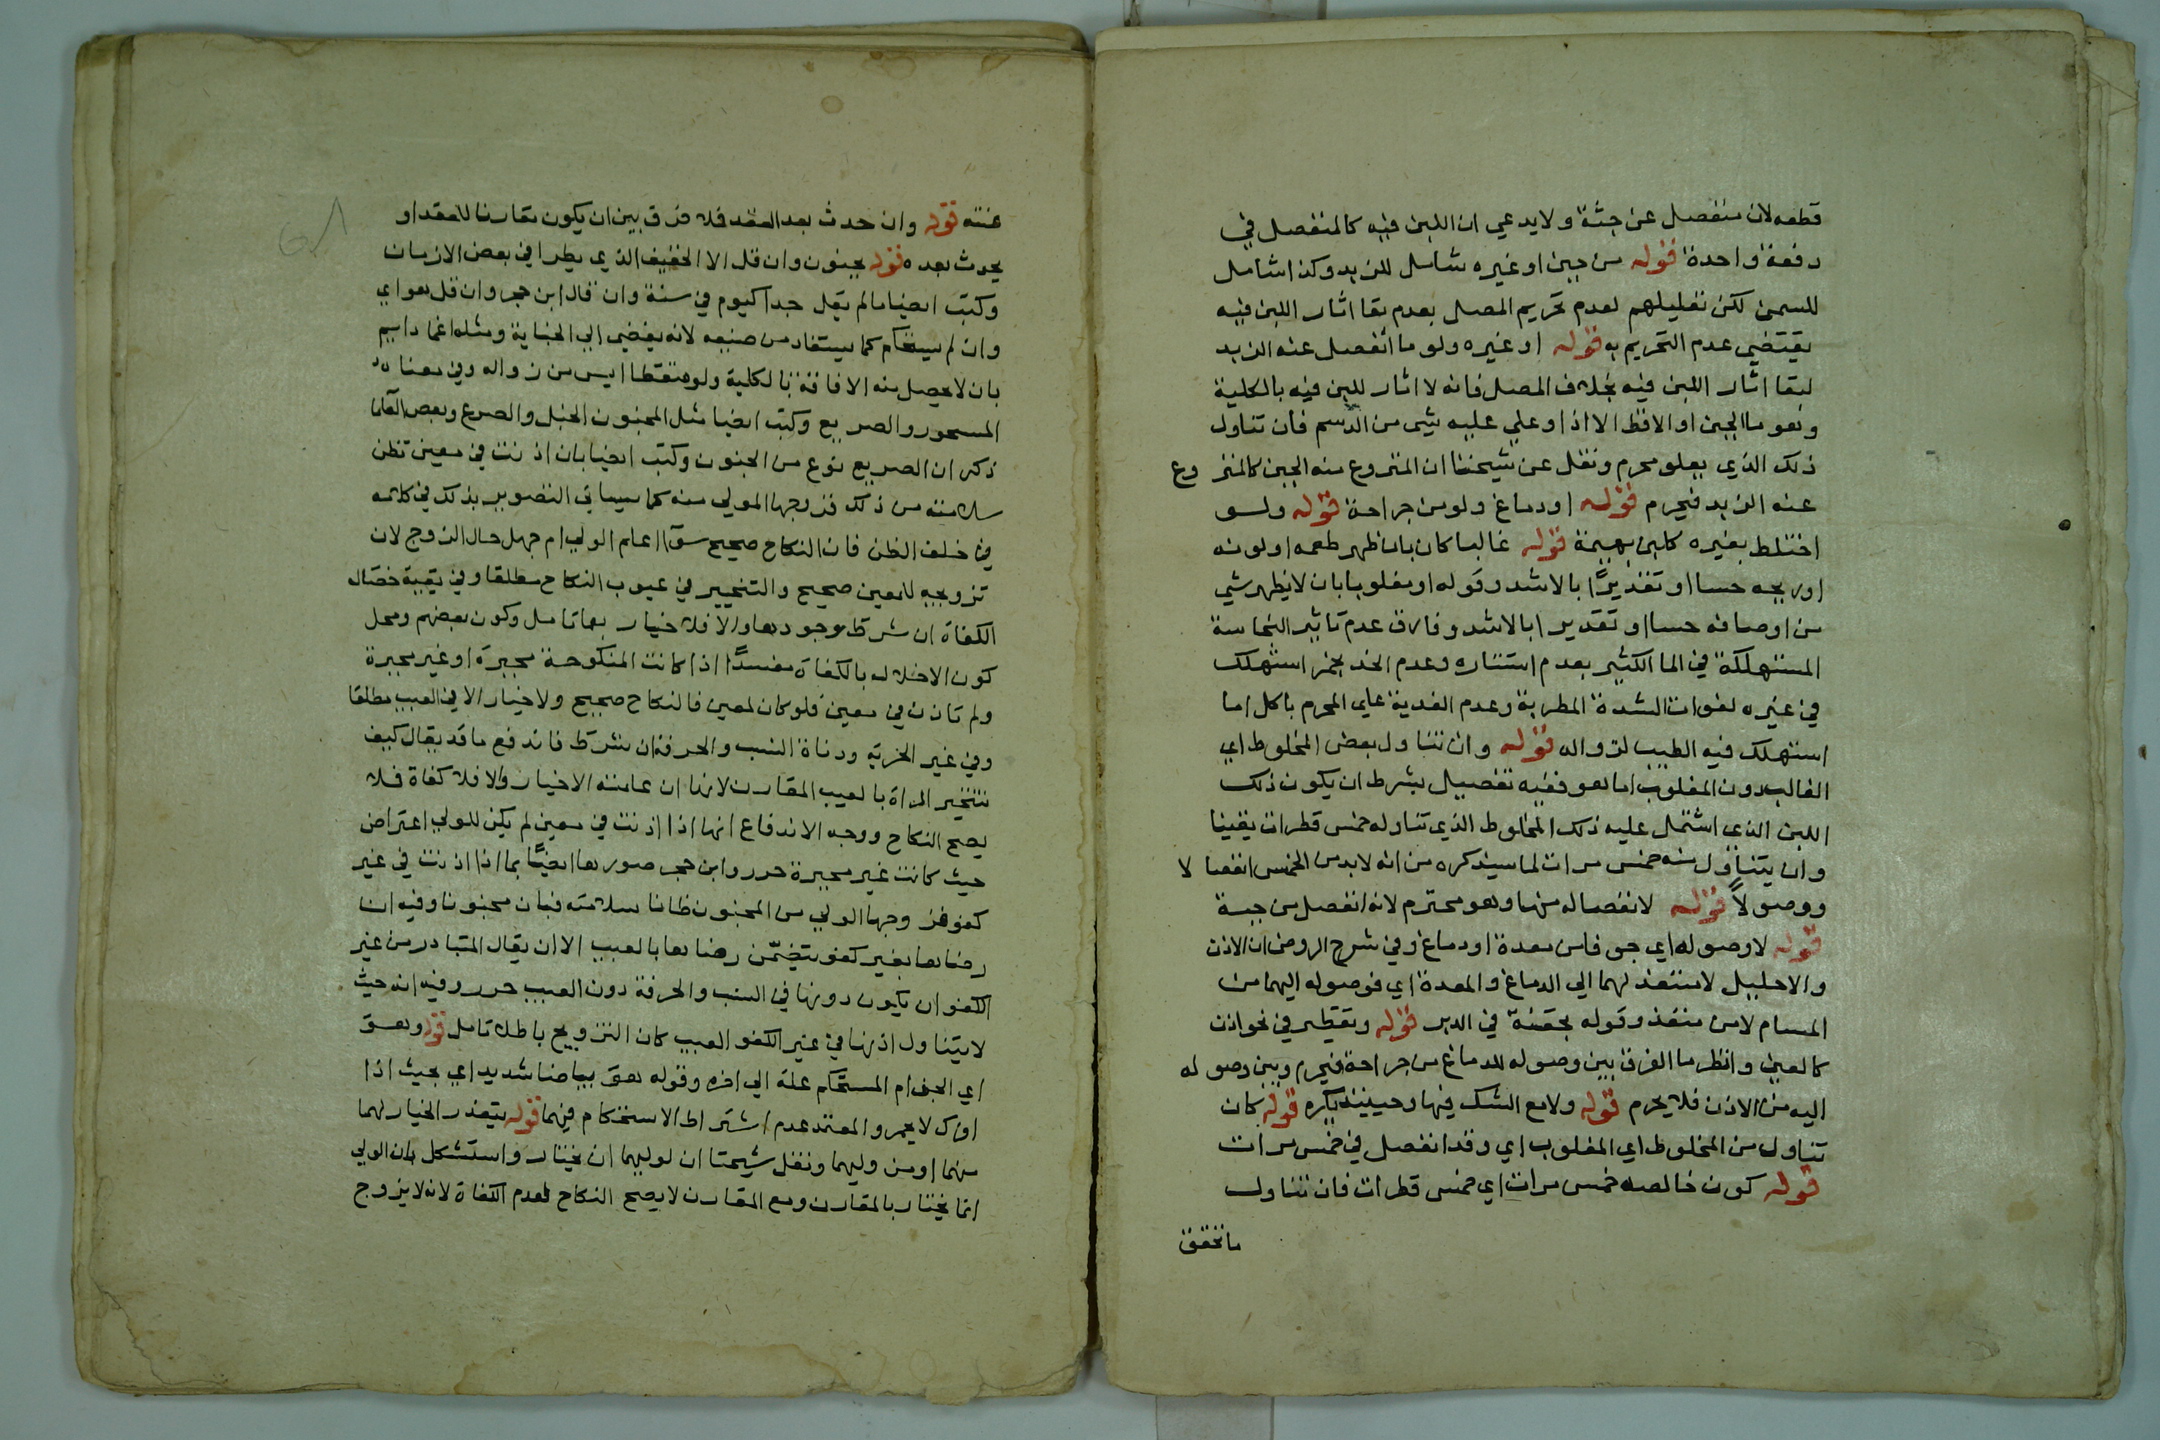 قطعه لان منفصل عن جثة ولا يدعي ان اللبن فيه كالمنفصل في
دفعة واحدة قوله من جبن او غيره شامل للزبد وكذا شامل
للسمن لكن تعليلهم لعدم تحريم المصل بعدم بقا اثار اللبن فيه
يقتضي عدم التحريم به قوله او غيره ولو ما انفصل عنه الزبد
لبقا اثار اللبن فيه بخلاف المصل فانه لا اثار للبن فيه بالكلية
ونحو ما الجبن او الاقط الا اذا وعلي عليه شي من الدسم فان تناول
ذلك الذي يعلو محرم ونقل عن شيخنا ان المنزوع منه الجبن كالمنزوع
عنه الزبد فيحرم قوله او دماغ ولو من جراحة قوله ولو
اختلط بغيره كلبن بهيمة قوله غالبا كان بان ظهر طعمه او لونه
او ريحه حسا او تقديرًا بالاشد وقوله او مغلوبا بان لا يظهر شي
من اوصافه حسا او تقديرا بالاشد وفارق عدم تاثير النجاسة
المستهلكة في الما الكثير بعدم استتاره وعدم الحد بخمر استهلك
في غيره لفوات الشدة المطربة وعدم الفدية علي المحرم باكل ما
استهلك فيه الطيب لزواله قوله وان تناول بعض المخلوط اي
الغالب دون المغلوب اما هو ففيه تفصيل بشرط ان يكون ذلك
اللبن الذي اشتمل عليه ذلك المخلوط الذي تناوله خمس قطرات يقينا
وان يتناول منه خمس مرات لما سيذكره من انه لا بد من الخمس انفصالا
ووصولاً قوله لانفصاله منها وهو محترم لانه انفصل من جبسة
قوله لا وصوله اي جوفا من معدة او دماغ وفي شرح الروض ان الاذن
والاحليل لا منتفذ لهما الي الدماغ والمعدة اي فوصوله اليهما من
المسام لا من منفذ وقوله بحقنة في الدبر قوله وتقطير في نحو اذن
كالعين وانظر ما الفرق بين وصوله للدماغ من جراحة فيحرم وبين وصوله
اليه من الاذن فلا يحرم قوله ولا مع الشك فيها وحينيذ يكره قوله كان
تناول من المخلوط اي المغلوب اي وقد انفصل في خمس مرات
قوله كون خالصه خمس مرات اي خمس قطرات فان تناول
ما تحقق
عنته قوله وان حدث بعد العقد فلا فرق بين ان يكون مقارنا للعقد او
يحدث بعده قوله بجنون وان قل الا الخفيف الذي يطرا في بعض الازمان
وكتب ايضا ما لم يقل جدا كيوم في سنة وان قال ابن حجر وان قل هو اي
وان لم يستحكم كما يستفاد من صنيعه لانه يفضي الي الجناية ومثله اغما دايم
بان لا يحصل منه الافاقة بالكلية ولو متقطا ايس من زواله وفي معناه
المسحور والصريع وكتب ايضا مثل المجنون الخبل والصرع وبعض العلما
ذكر ان الصريع نوع من الجنون وكتب ايضا بان اذنت في معين تظن
سلامته من ذلك فزوجها المولي منه كما سياتي التصوير بذلك في كلامه
في خلف الظن فان النكاح صحيح سوآ اعلم الولي ام جهل حال الزوج لان
تزويجه للمعين صحيح والتخيير في عيوب النكاح مطلقا وفي بقية خصال
الكفاة ان شرط وجودها والا فلا خيار بها تامل وكون بعضهم ومحل
كون الاخلال بالكفاة مفسدًا اذا كانت المنكوحة مجبرة او غير مجبرة
ولم تاذن في معين فلو كان لمعين فالنكاح صحيح ولا خيار الا في العيب مطلقا
وفي غير الحرية ودناة النسب والحرفة ان شرط فاندفع ما قد يقال كيف
تتخير المراة بالعيب المقارن لانها ان علمته الاخيار والا فلا كفاة فلا
يصح النكاح ووجه الاندفاع انها اذا اذنت في معين لم يكن للولي اعتراض
حيث كانت غير مجبرة حرر وابن حجر صورها ايضًا بما اذا اذنت في غير
كفو فزوجها الولي من المجنون ظانا سلامته فبان مجنونا وفيه ان
رضاها بغير كفو يتضمّن رضاها بالعيب الا ان يقال المتبادر من غير
الكفو ان يكون دونها في النسب والحرفة دون العيب حرر وفيه انه حيث
لا يتناول اذنها في غير الكفو العيب كان التزويج باطلا تامل قوله وهو
اي الجذام المستحكم علة الي اخره وقوله هو بياضا شديد اي بحيث اذا
افرك لا يحمر والمعتمد عدم اشتراط الاستحكام فيهما قوله يتعذر الخيار لهما
منهما او من وليهما ونقل شيخنا ان لوليهما ان يختار واستشكل بان الولي
انما يختار بالمقارن ومع المقارن لا يصح النكاح لعدم الكفاة لانه لا يزوج